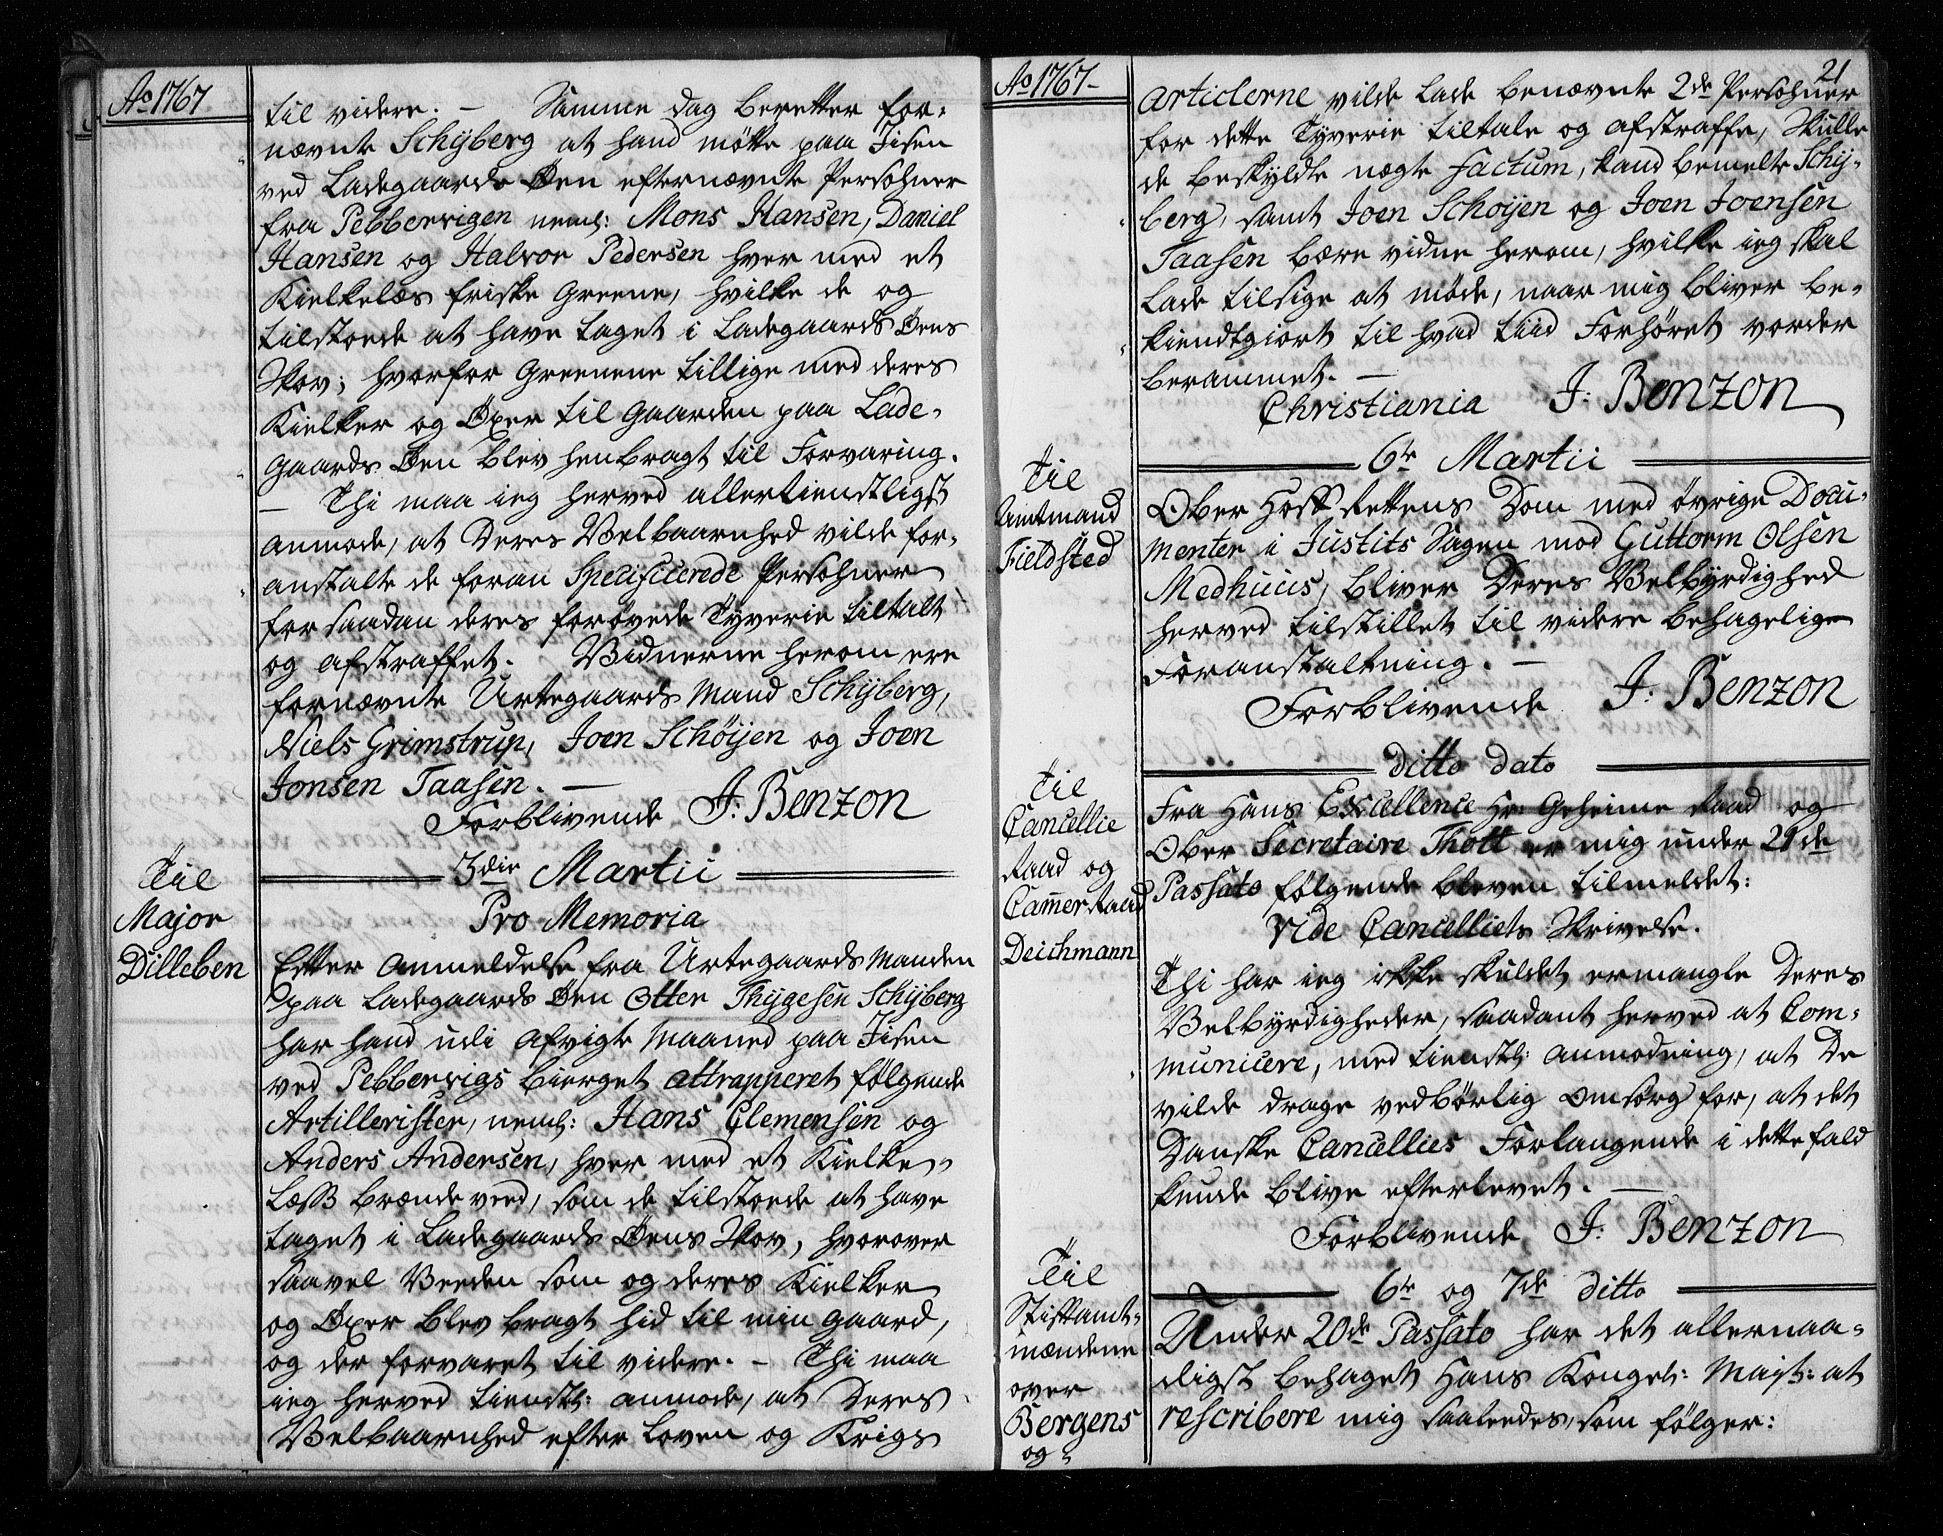 Ao 1767
til videre. — Samme dag beretter for-
nævnte Schÿberg at hand mötte paa Jisen
ved Ladegaards Öen efternævnte Persohner
fra Pebbervigen neml: Mons Hansen, Daniel
Hansen og Halvor Pedersen hver med et
Kielkelæs friske Greene, hvilke de og
tilstoede at have taget i Ladegaards Öens
Skov; hvorfor Greenene tillige med deres
Kielker og Öxer til Gaarden paa Lade-
gaards Öen blev henbragt til Forvaring.
— Thi maa ieg herved allertienstligst
anmode, at Deres Velbaarnhed vilde for-
anstalte de foran Specificerede Persohner
for saadan deres forövede Tyverie tiltalt
og afstraffet. Vidnerne herom ere
fornævnte Urtegaards Mand Schÿberg,
Niels Grimstrup, Joen Schöÿen og Joen
Jonsen Taasen. —
Forblivende J: Benzon
3die Martii
Til
Major
Dilleben
Pro Memoria
Efter Anmeldelse fra Urtegaards Manden
paa Ladegaards Öen Otter Thÿgesen Schÿberg
har hand udi afvigte Maaned paa Jisen
ved Pebbervigs bierget attrapperet fölgende
Artillerister, neml: Hans Clemensen og
Anders Andersen, hver med et Kielke-
læss brændeveed, som de tilstoede at have
taget i Ladegaards Öens Skov, hvorover
saavel Veeden som og deres Kielker
og Öxer blev bragt hid til min gaard,
og der forvaret til videre. — Thi maa
ieg herved tienstl: anmode, at Deres
Velbaarnhed efter Loven og Krigs
Ao 1767-
21
Articlerne vilde lade benævnte 2de Persohner
for dette Tyverie tiltale og afstraffe, Skulle
de beskyldte nægte factum, kand bemelte Schÿ-
berg, samt Joen Schoÿen og Joen Joensen
Taasen bære vidne herom, hvilke ieg skal
lade tilsige at møde, naar mig bliver be-
kiendtgiort til hvad tiid Forhöret vorder
berammet. —
Christiania J: Benzon
6te Martii
Til
Amtmand
Fieldsted
Ober Hoff Rettens Dom med övrige Docu-
menter i Justits Sagen mod Guttorm Olsen
Medhuus, bliver Deres Velbyrdighed
herved tilstillet til videre behagelige
Foranstaltning. —
Forblivende J: Benzon
ditto dato
Til
Cancellie
Raad og
Camerraad
Deichmann
Fra Hans Excellence Hr Geheime Raad og
Ober Secretaire Thott er mig under 21de
Passato fölgende bleven tilmeldet:
vide Cancelliets Skrivelse.
Thi har ieg ikke skuldet ermangle Deres
Velbyrdigheder, saadant herved at Com-
municere, med tienstl: anmodning, at De
vilde drage vedbörlig Omsorg for, at det
Danske Cancellies Forlangende i dette fald
kunde blive efterlevet. —
Forblivende J: Benzon
6te og 7de ditto
Til
Stiftamt-
mændene
over
Bergens
og
Under 20de Passato har det allernaa-
digst behaget Hans Kongel: Mayt: at
rescribere mig saaledes, som fölger: